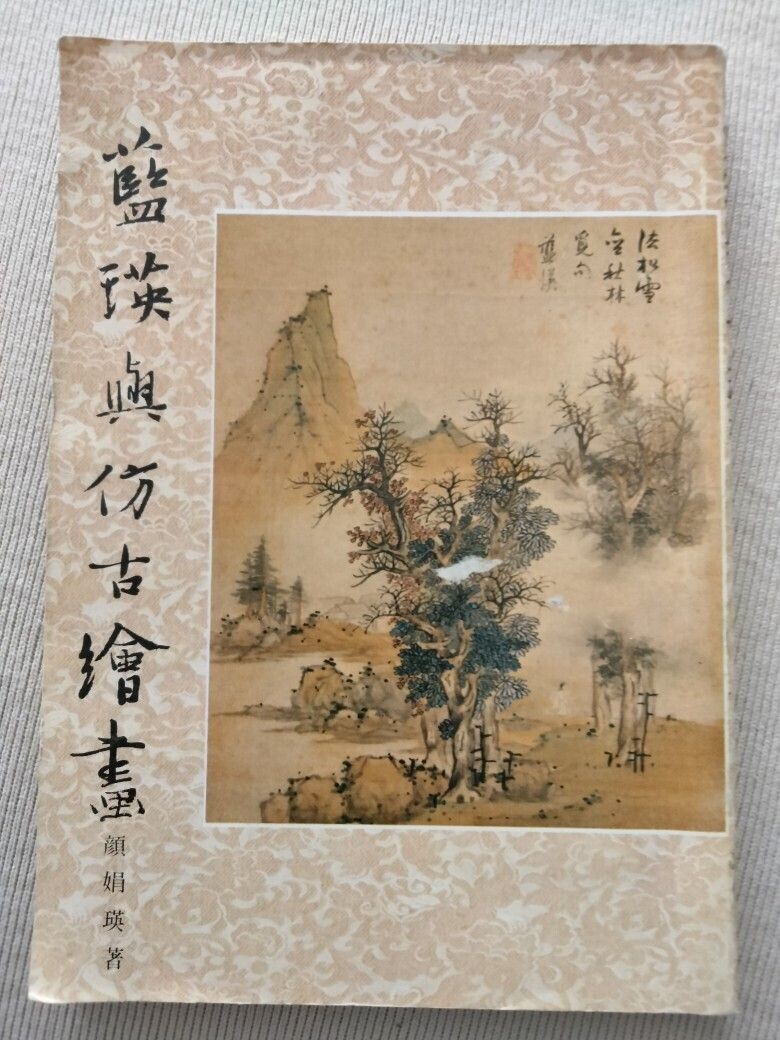 藍瑛與仿古繪畫
顏娟瑛著
法松雪
秋林
覓句
藍瑛